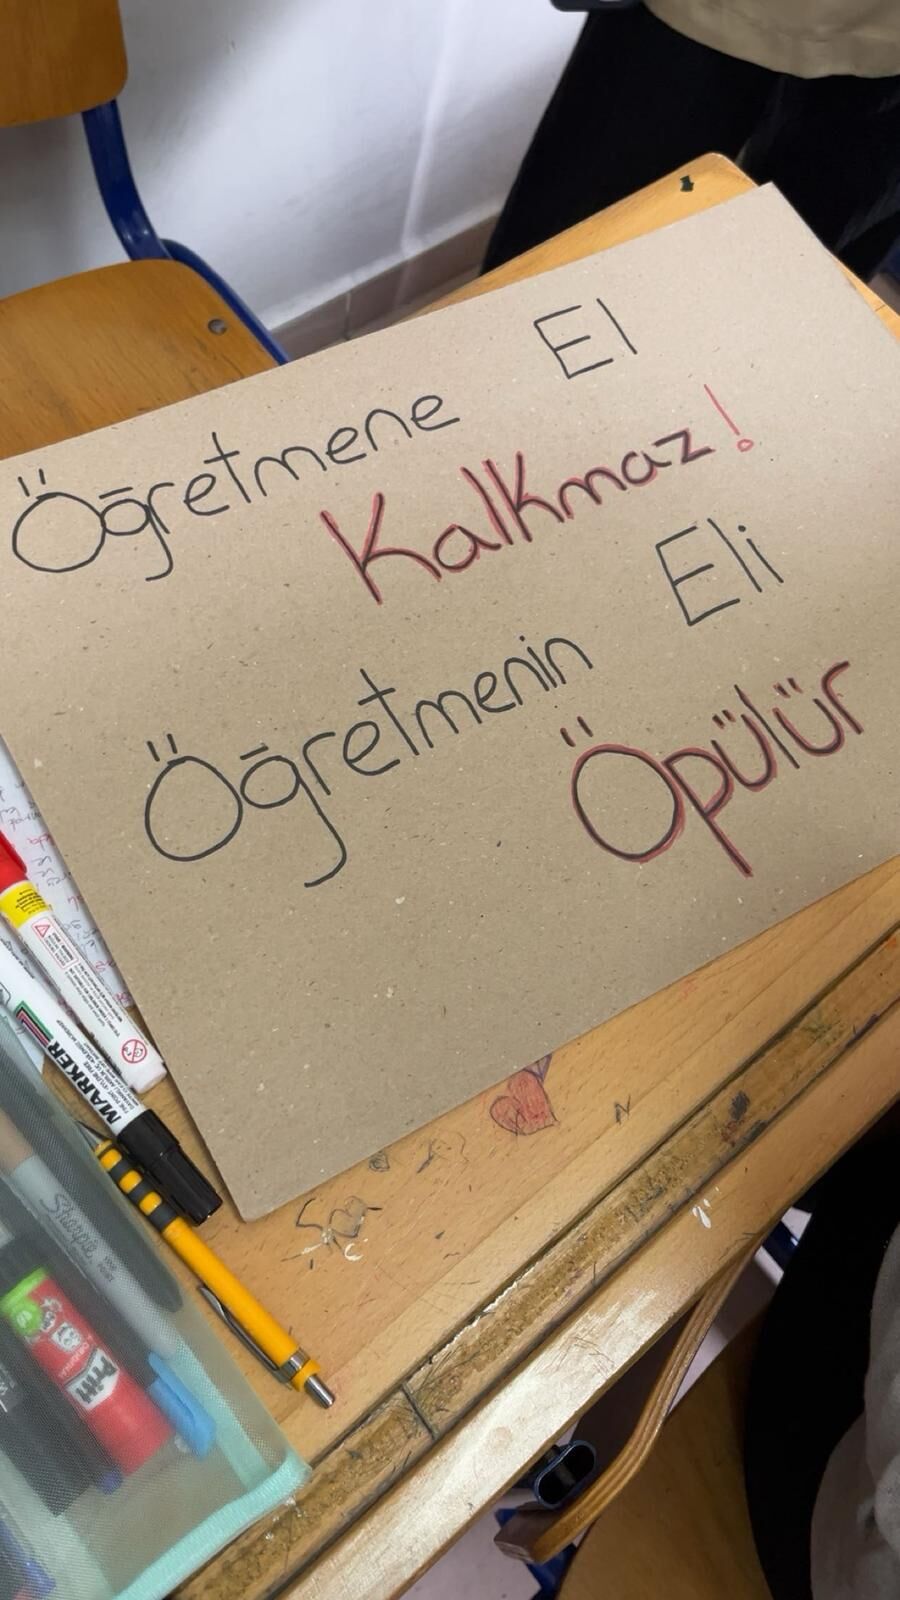 Öğretmene El
Kalkmaz!
Öğretmenin Eli
Öpülür
MARKER
Sharpie
Pritt
ORIGINAL